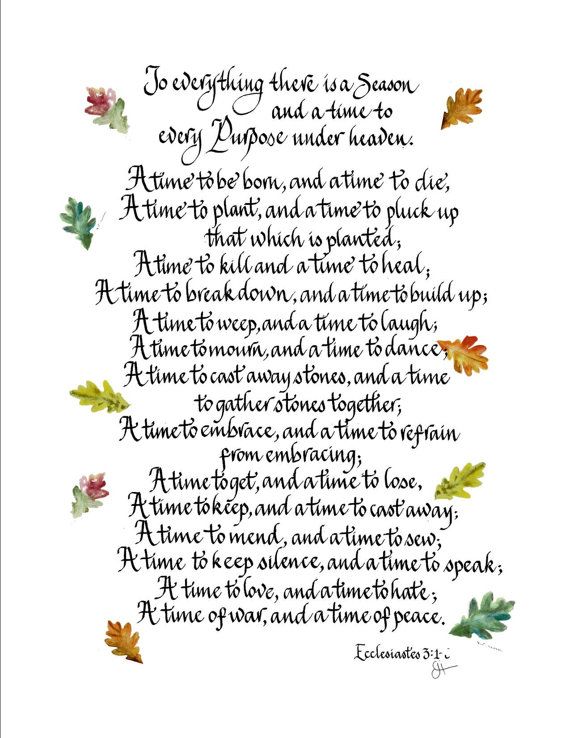 To everything there is a Season
and a time to
every Purpose under heaven.
A time to be born, and a time to die,
A time to plant, and a time to pluck up
that which is planted;
A time to kill and a time to heal;
A time to break down, and a time to build up;
A time to weep, and a time to laugh;
A time to mourn, and a time to dance;
A time to cast away stones, and a time
to gather stones together;
A time to embrace, and a time to refrain
from embracing;
A time to get, and a time to lose,
A time to keep, and a time to cast away;
A time to mend, and a time to sew;
A time to keep silence, and a time to speak;
A time to love, and a time to hate;
A time of war, and a time of peace.
Ecclesiastes 3:1-